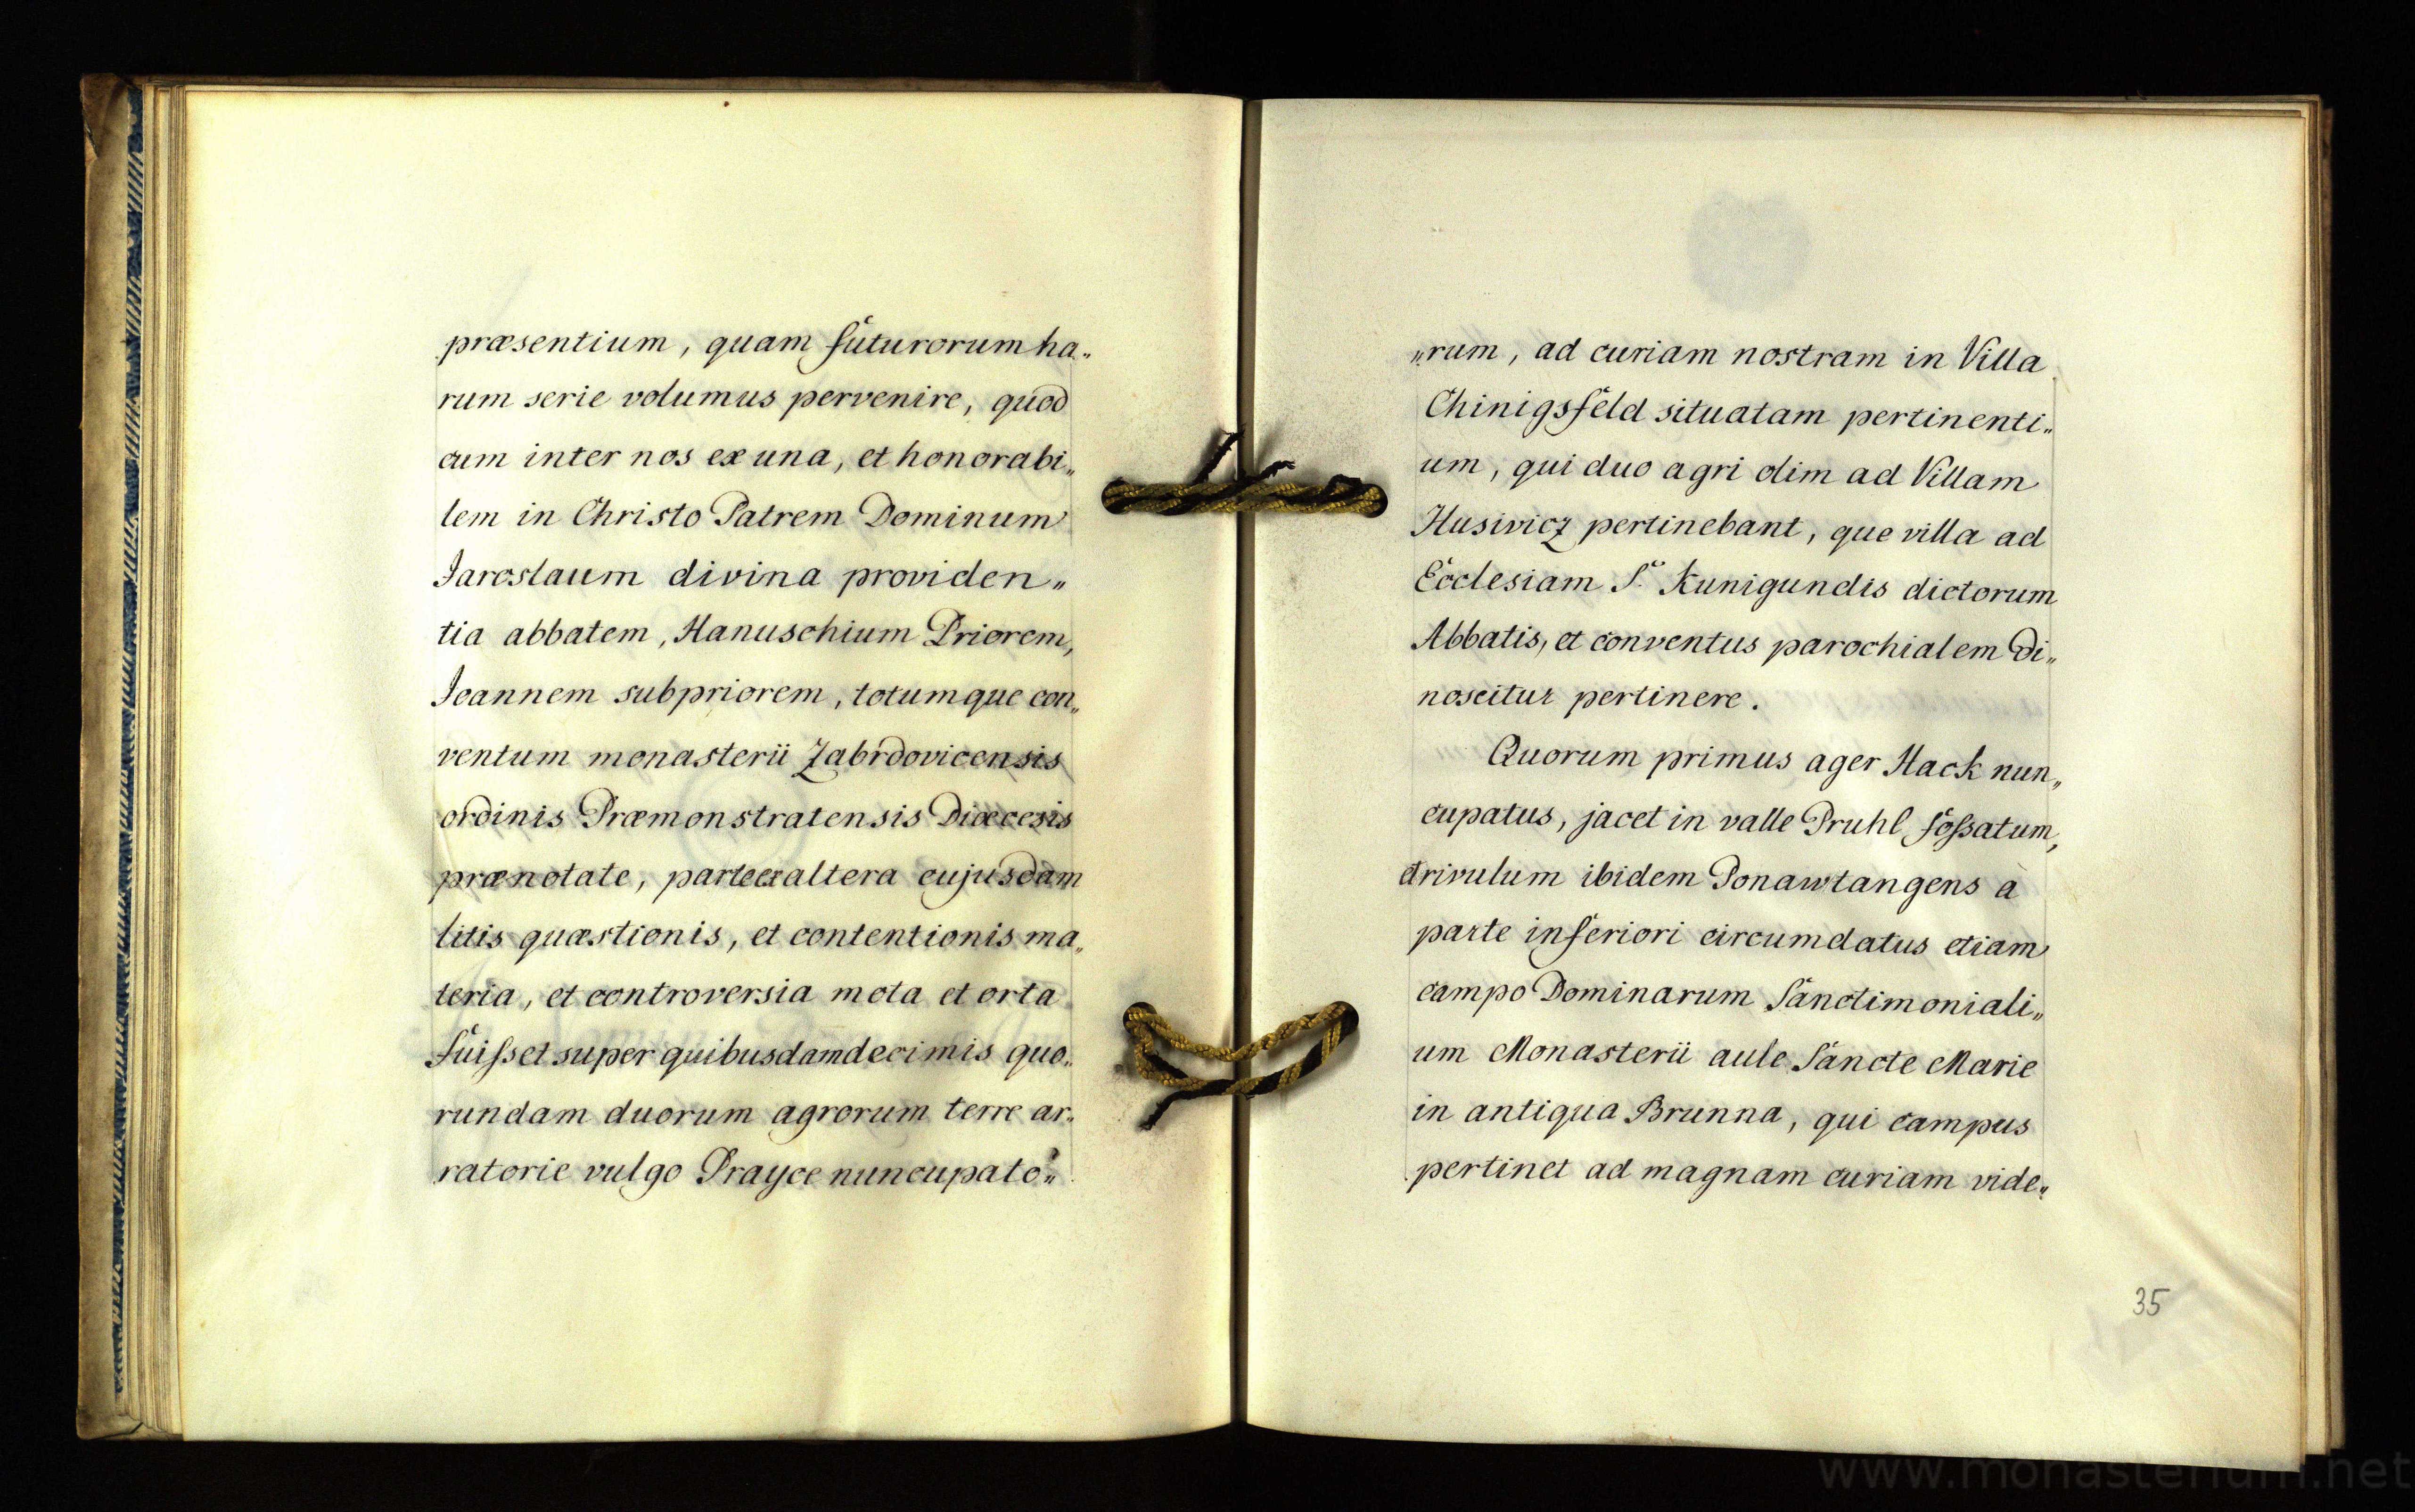 præsentium, quam futurorum ha„
rum serie volumus pervenire, quod
cum inter nos ex una, et honorabi„
lem in Christo Patrem Dominum
Jaroslaum divina providen„
tia abbatem, Hanuschium Priorem,
Joannem subpriorem, totumque con„
ventum monasterii Zabrdovicensis
ordinis Præmonstratensis Diœcesis
prænotate, parte ex altera cujusdam
litis quæstionis, et contentionis ma„
teria, et controversia mota et orta
fuisset super quibusdam decimis quo„
rundam duorum agrorum terre ar„
ratorie vulgo Prayce nuncupato„
„rum, ad curiam nostram in Villa
Chinigsfeld situatam pertinenti„
um, qui duo agri olim ad Villam
Husivicz pertinebant, que villa ad
Ecclesiam S. Kunigundis dictorum
Abbatis, et conventus parochialem di„
noscitur pertinere.
Quorum primus ager Hack nun„
cupatus, jacet in valle Pruhl fossatum,
et rivulum ibidem Ponaw tangens à
parte inferiori circumdatus etiam
campo Dominarum Sanctimoniali„
um Monasterii aule Sancte Marie
in antiqua Brunna, qui campus
pertinet ad magnam curiam vide„
35
www.monasterium.net